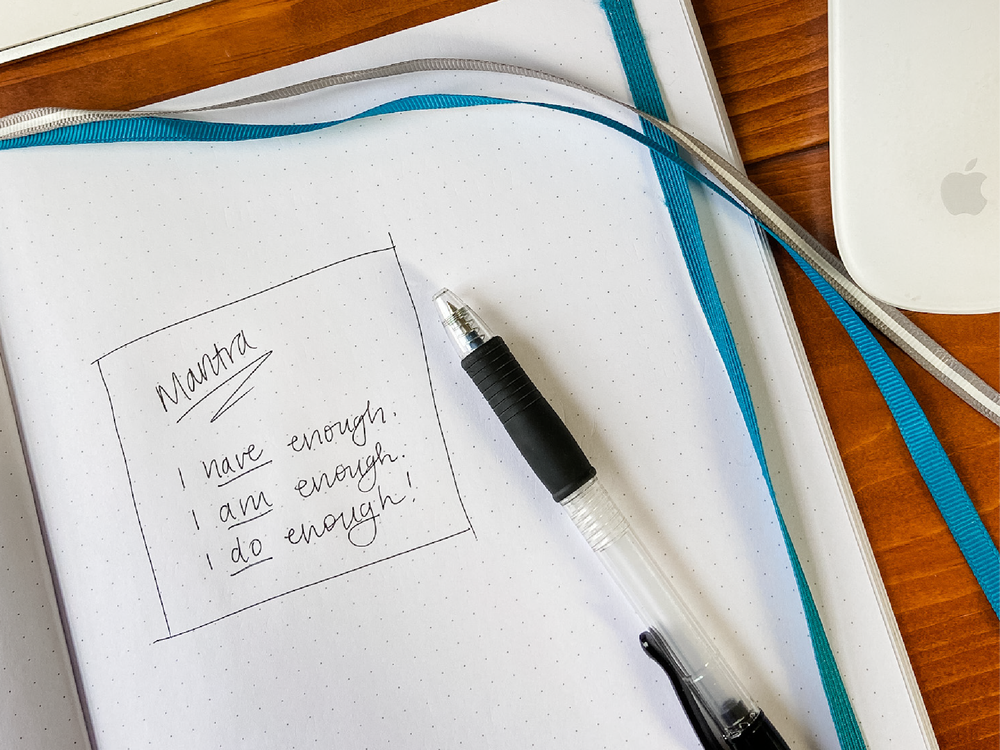 Mantra
I have enough.
I am enough.
I do enough!